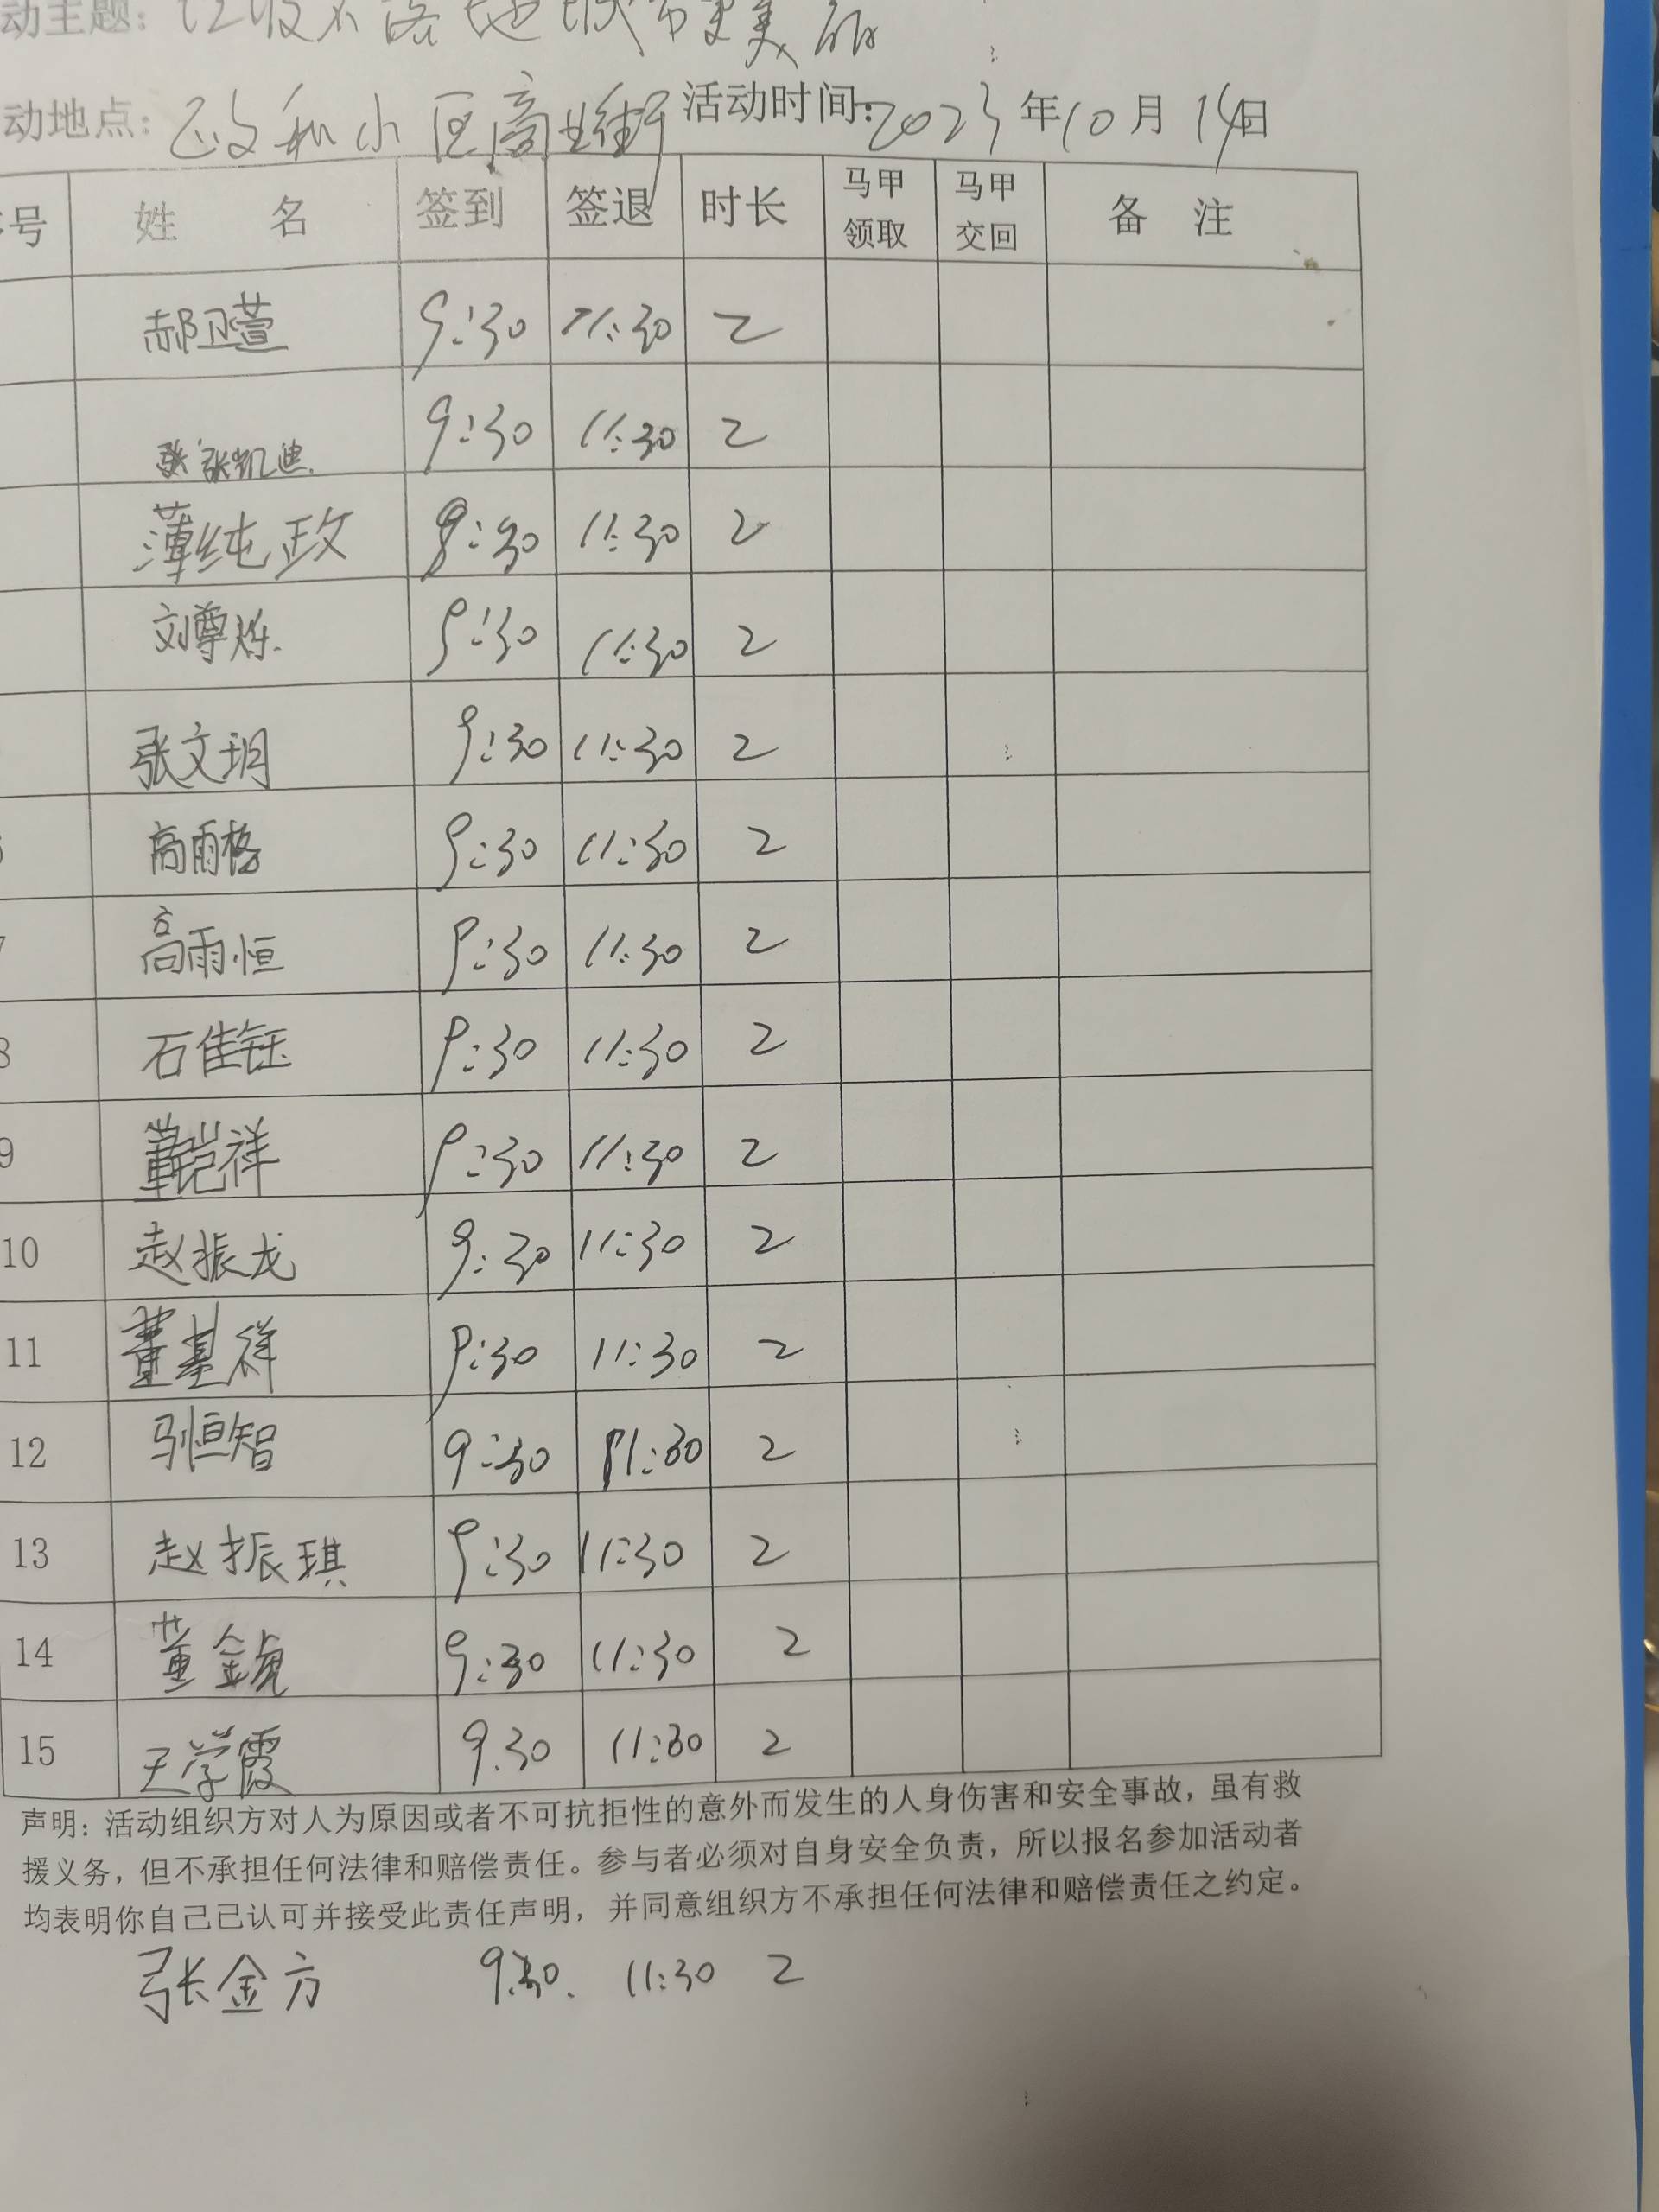 动主题：垃圾不落地城市更美丽
动地点：政和小区商业街 活动时间：2023年10月14日
号 姓 名 签到 签退 时长 马甲领取 马甲交回 备 注
郝卫萱 9:30 11:30 2
张凯迪 9:30 11:30 2
薄纯政 9:30 11:30 2
刘尊烁 9:30 11:30 2
张文玥 9:30 11:30 2
高雨格 9:30 11:30 2
7 高雨恒 9:30 11:30 2
8 石佳钰 9:30 11:30 2
9 董铠祥 9:30 11:30 2
10 赵振龙 9:30 11:30 2
11 董基祥 9:30 11:30 2
12 马恒智 9:30 11:30 2
13 赵振琪 9:30 11:30 2
14 董金虎 9:30 11:30 2
15 王学霞 9.30 11:30 2
声明：活动组织方对人为原因或者不可抗拒性的意外而发生的人身伤害和安全事故，虽有救
援义务，但不承担任何法律和赔偿责任。参与者必须对自身安全负责，所以报名参加活动者
均表明你自己已认可并接受此责任声明，并同意组织方不承担任何法律和赔偿责任之约定。
张金方 9:30. 11:30 2